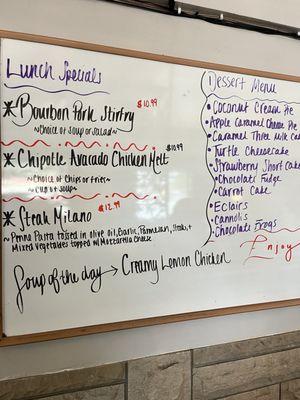 Lunch Specials
* Bourbon Pork Stirfry $10.99
~Choice of Soup or Salad~
* Chipotle Avacado Chicken Melt $10.99
~Choice of Chips or fries~
~Cup of Soup~
* Steak Milano $12.99
~Penne Pasta tossed in olive oil, Garlic, Parmesan, Steak, +
Mixed Vegetables topped w/ Mozzarella Cheese
Soup of the day → Creamy Lemon Chicken
Dessert Menu
• Coconut Cream Pie
• Apple Caramel Cheese Pie
• Caramel Three Milk Cake
• Turtle Cheesecake
• Strawberry Short Cake
• Chocolate Fudge
• Carrot Cake
• Eclairs
• Cannolis
• Chocolate Frogs
Enjoy